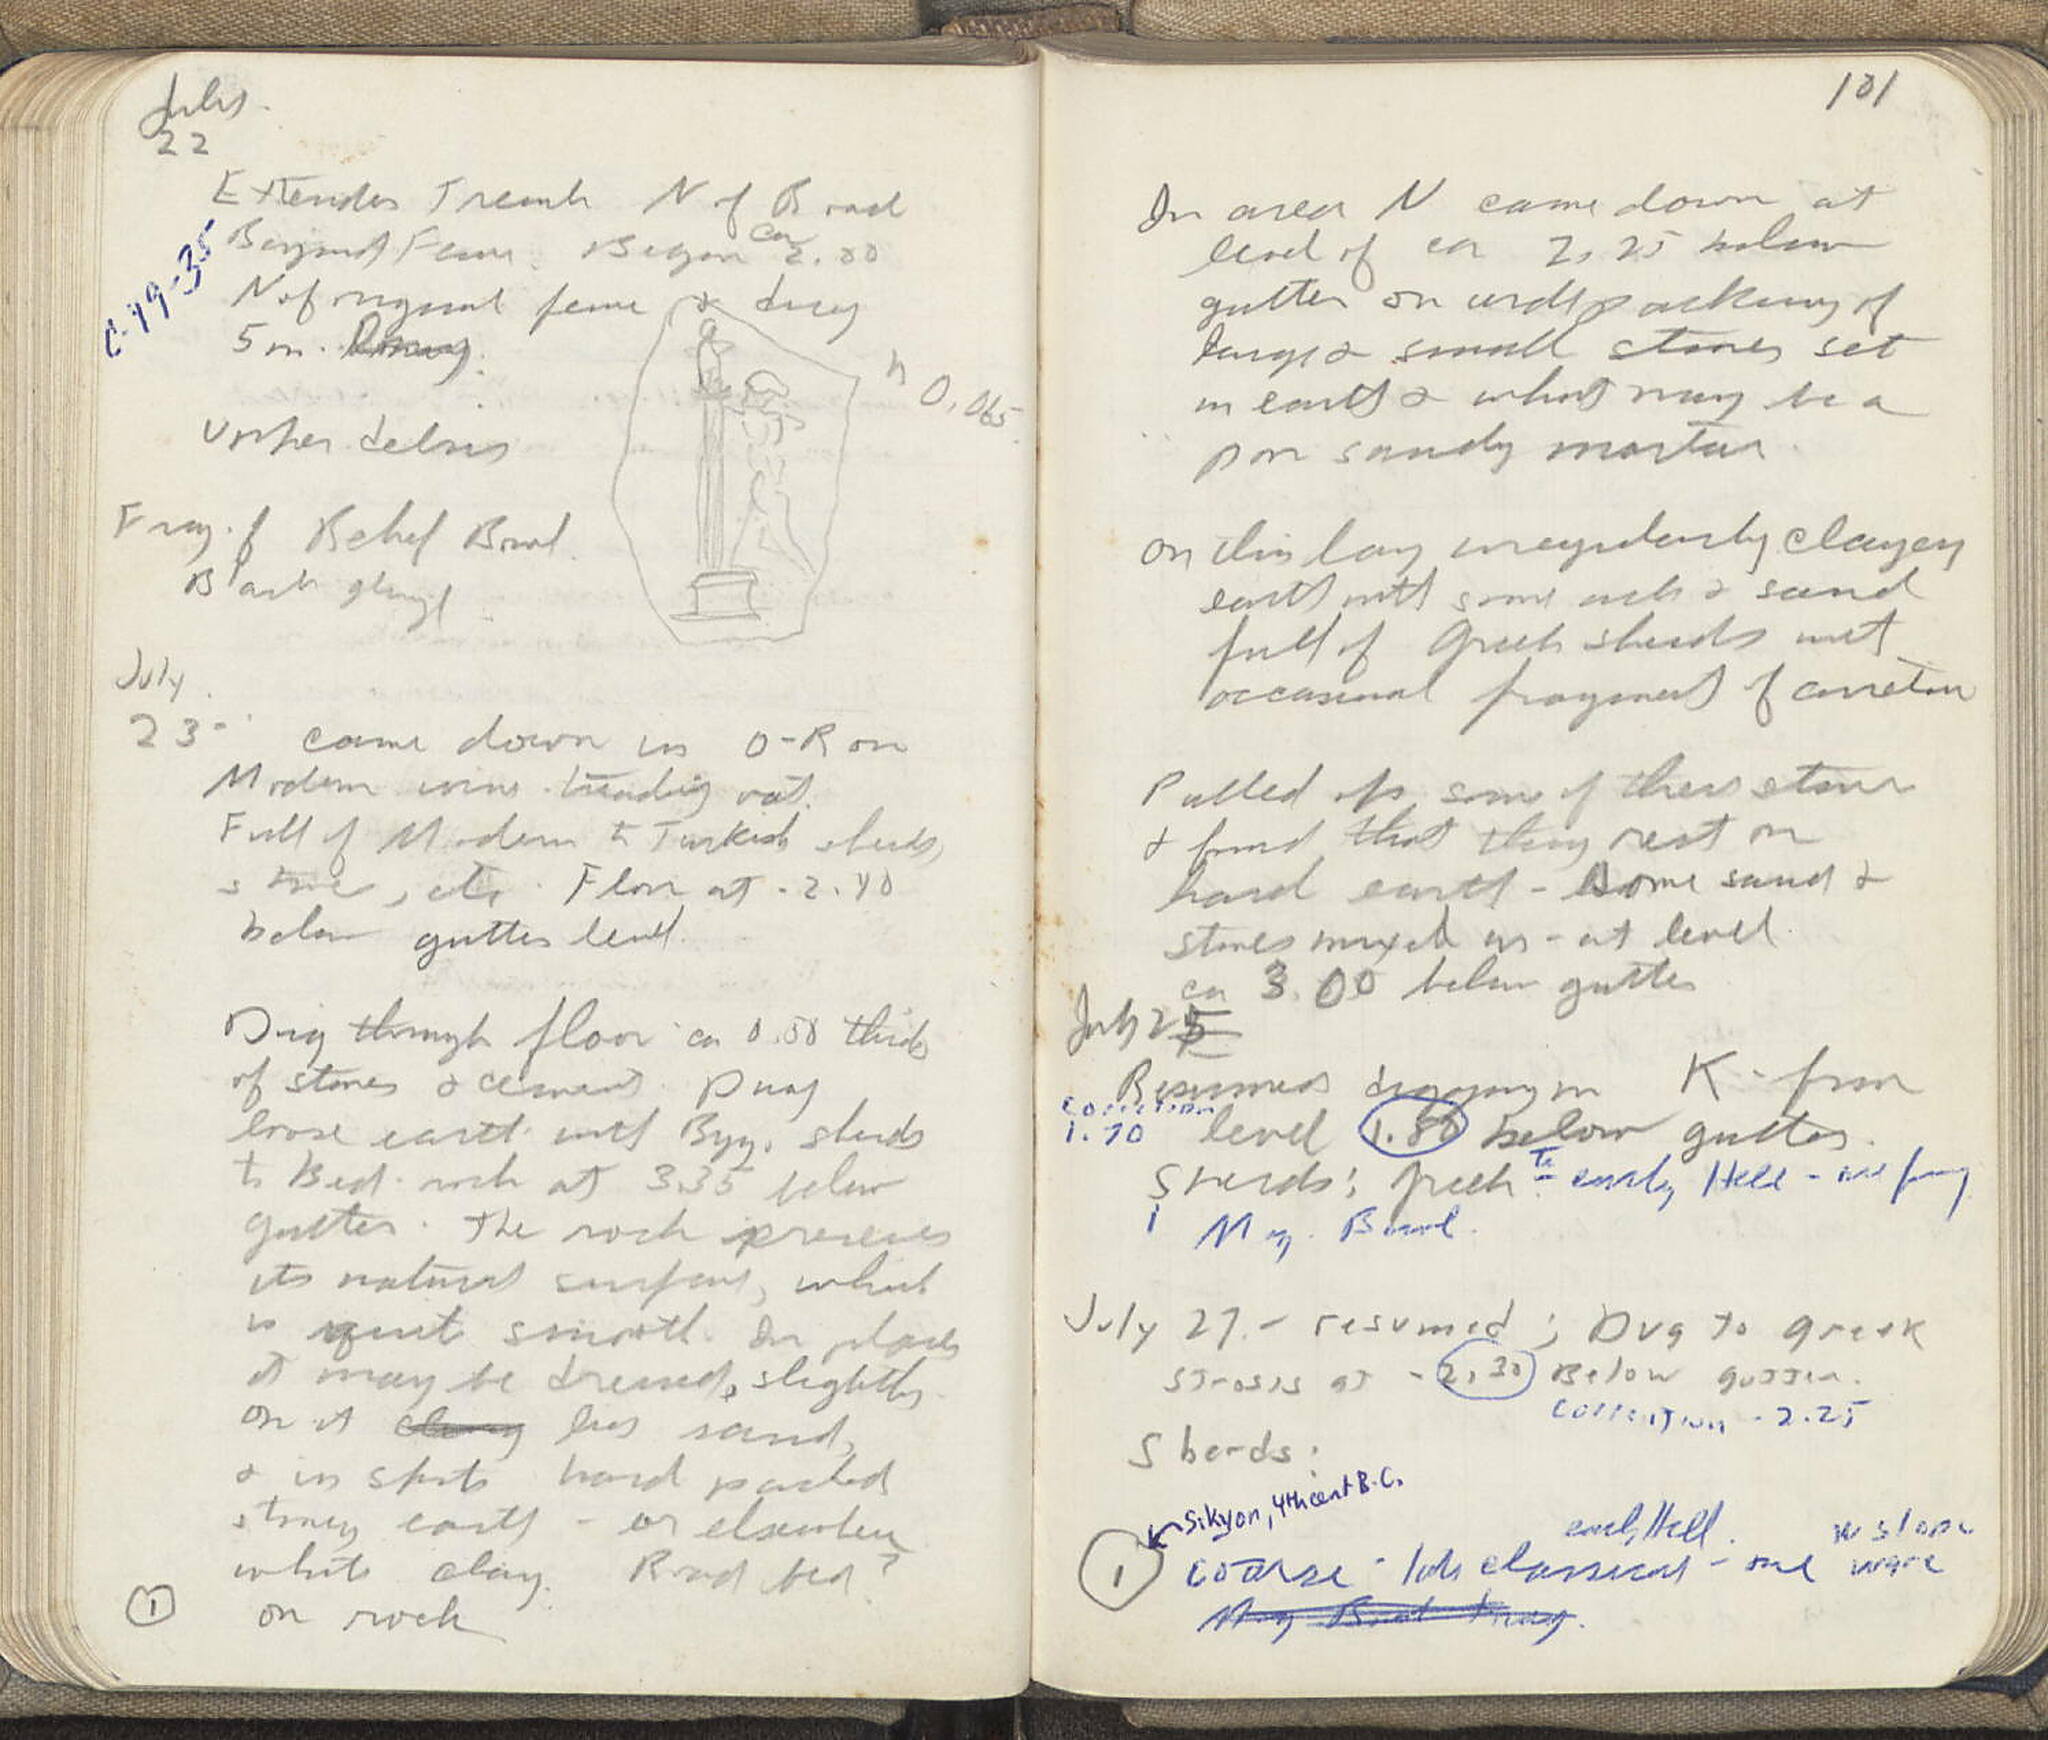 July
22
Extended Trench N of Road
Beyond Fence. Began ca 2.00
N of original fence & dug
5 m.
C-49-35
h 0,065
Upper debris
Frag. of Relief Bowl.
Black glazed
July
23- came down in O-R on
Modern wine treading vat.
Full of Modern to Turkish sherds,
stones, etc. Floor at -2.40
below gutter level.
Dug through floor ca 0.50 thick
of stones & cement. Dug
loose earth with Byz. sherds
to Bed rock at 3.35 below
gutter. The rock preserves
its natural surface, which
is quite smooth. In places
it may be dressed, slightly.
On it clay lies sand,
& in spots hard packed
stoney earth - or elsewhere
white clay. Road bed?
1 on rock
101
In area N came down at
level of ca 2,25 below
gutter on a packing of
large & small stones set
in earth & what may be a
poor sandy mortar.
On this lay irregularly clayey
earth with some ash & sand
full of Greek sherds with
occasional fragments of
Pulled up some of these stones
& found that they rest on
hard earth - some sand &
stones mixed in - at level
ca 3.00 below gutter
July 25
Resumed digging in K - from
correction
1.70 level 1.80 below gutter.
Sherds: Greek to early Hell - one frag
1 Meg. Bowl.
July 27.- resumed; Dug to greek
strosis at -2,30 Below gutter.
correction -2.25
Sherds:
Sikyon, 4th cent B.C.
early Hell. W slope
1 coarse - late classical - one ware
Meg Bowl frag.